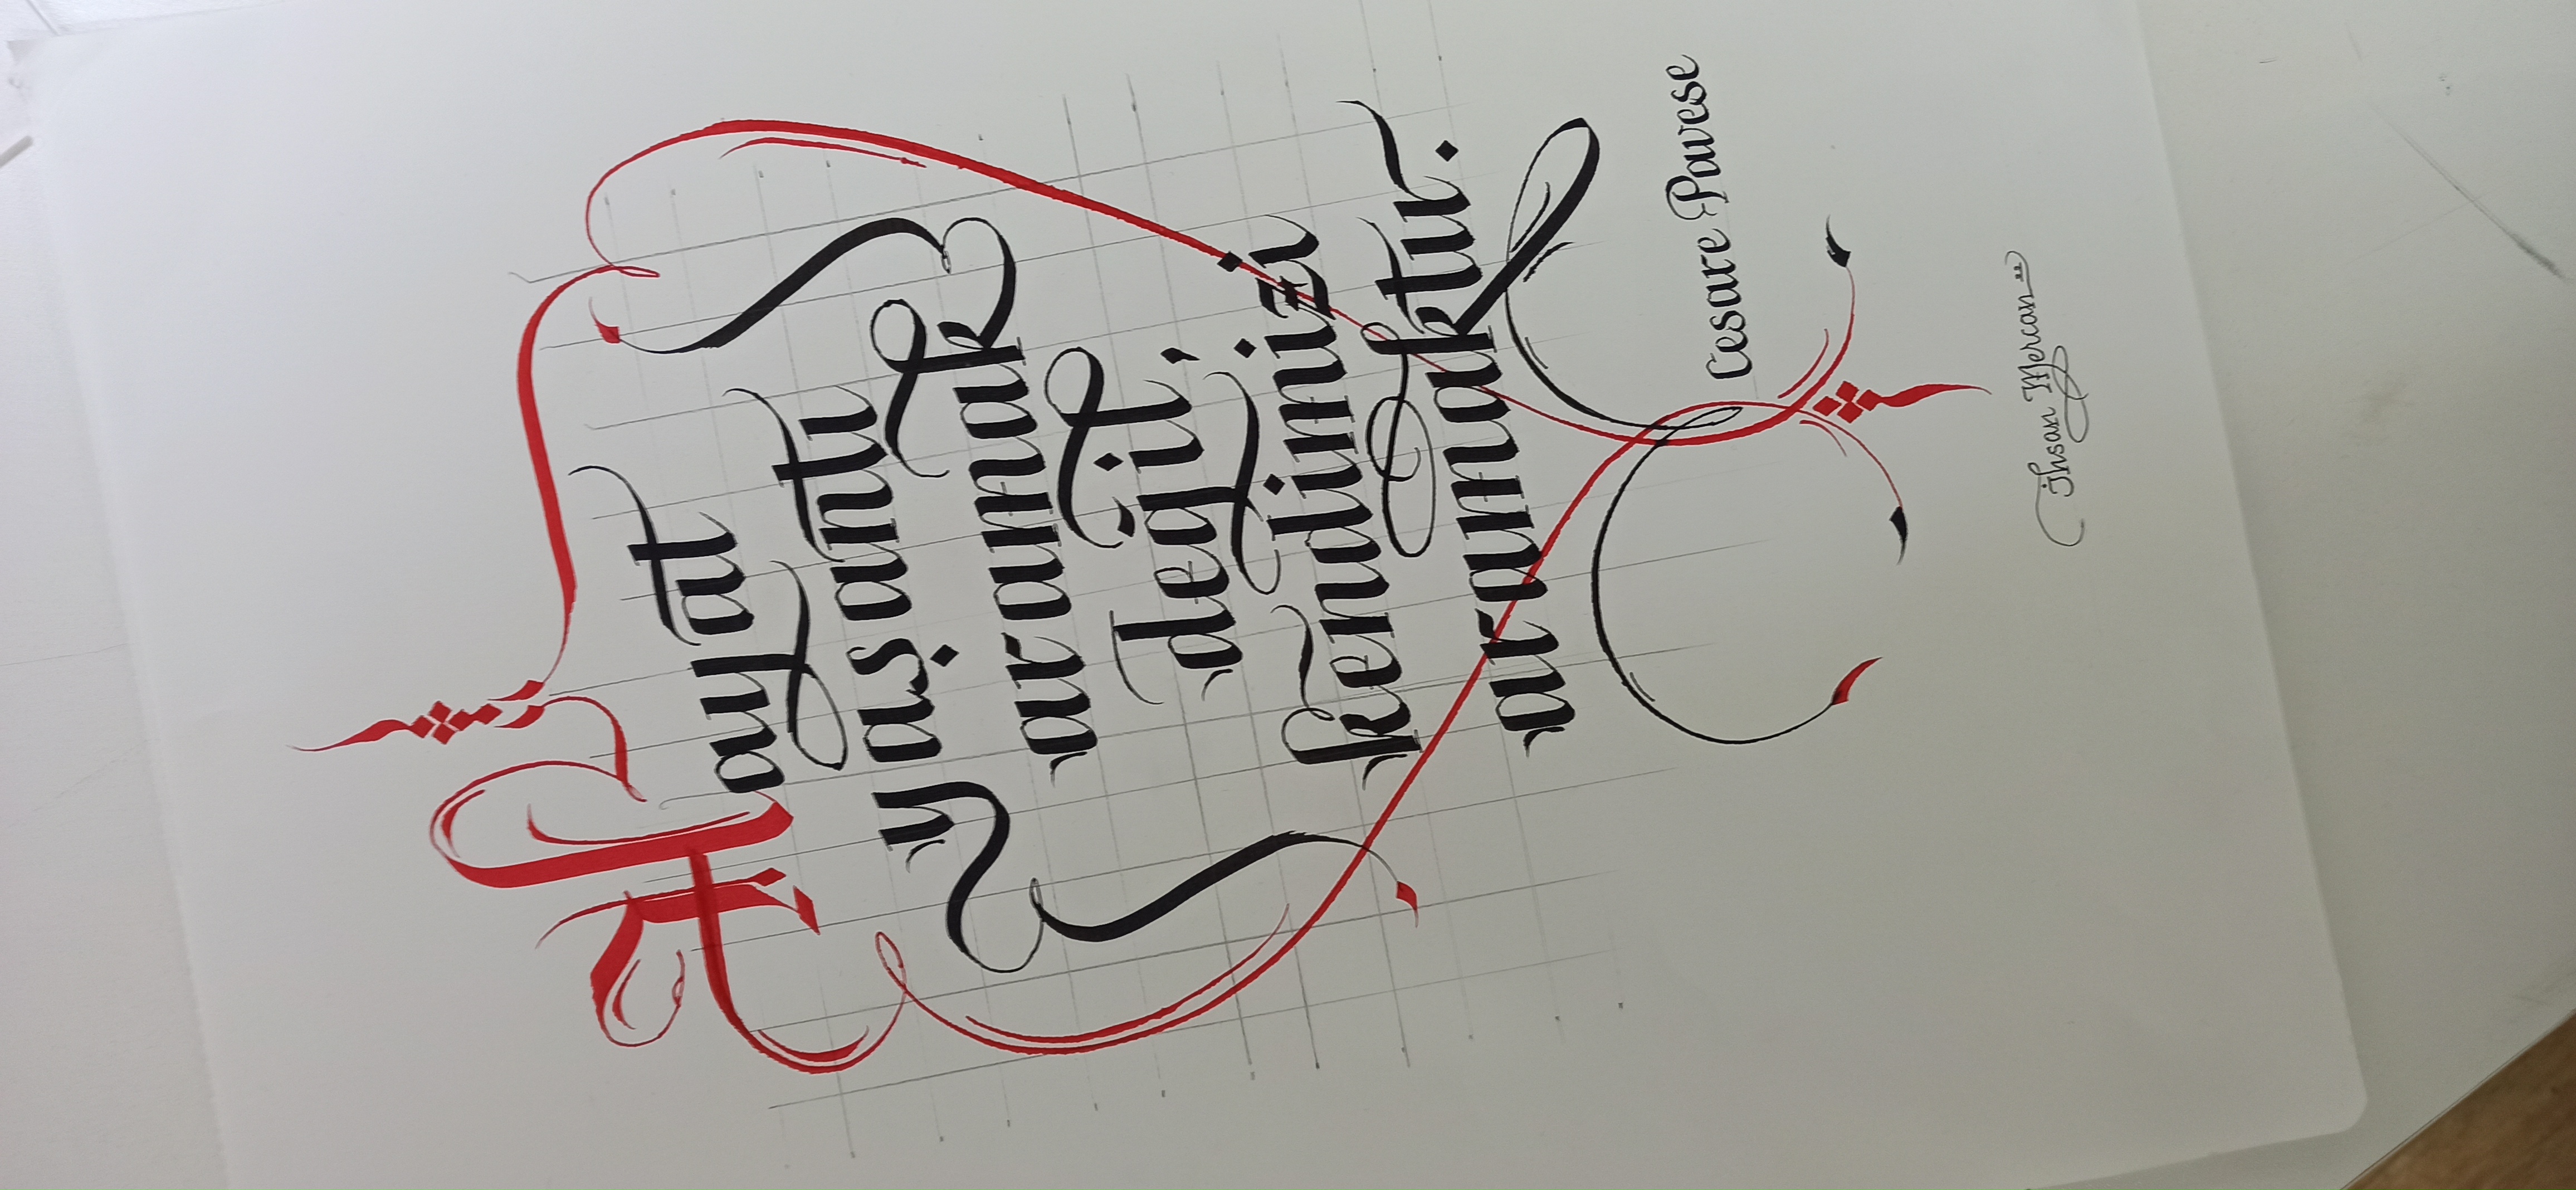 Hayat
yaşantı
aramak
değil,
kendimizi
aramaktır.
Cesare Pavese
İhsan Mercan